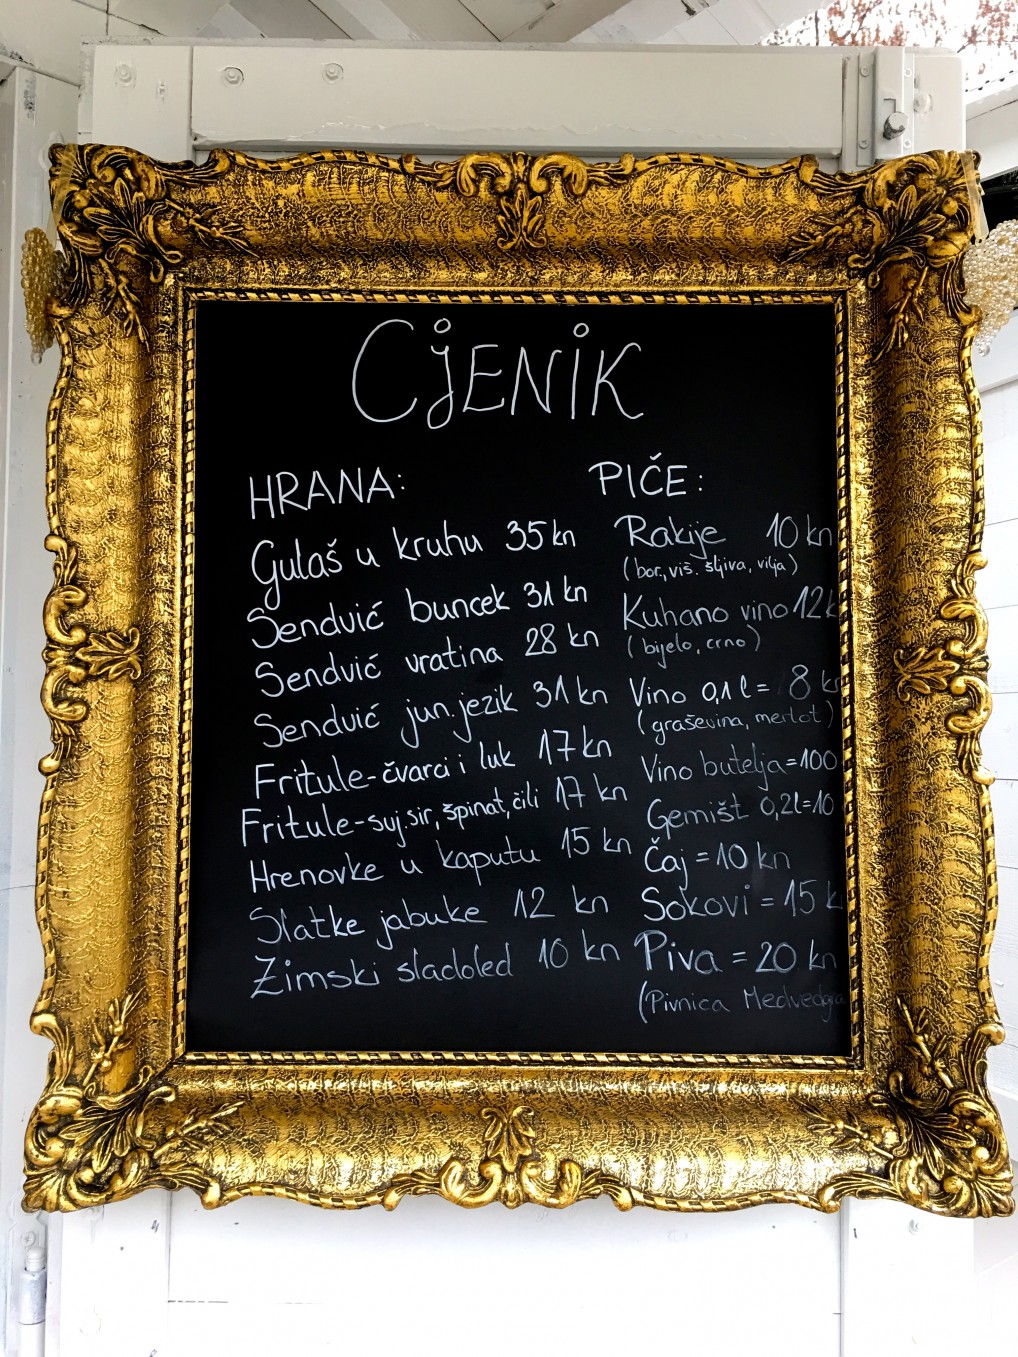 CJENIK
HRANA:
Gulaš u kruhu 35 kn
Sendvić buncek 31 kn
Sendvić vratina 28 kn
Sendvić jun. jezik 31 kn
Fritule-čvarci i luk 17 kn
Fritule-suj. sir, špinat, čili 17 kn
Hrenovke u kaputu 15 kn
Slatke jabuke 12 kn
Zimski sladoled 10 kn
PIČE:
Rakije 10 kn
(bor., viš. šljiva, vilja)
Kuhano vino 12 k
(bijelo, crno)
Vino 0,1 l = 8 kn
(graševina, merlot)
Vino butelja=100
Gemišt 0,2l=10
Čaj = 10 kn
Sokovi = 15 k
Piva = 20 kn
(Pivnica Medvedgra